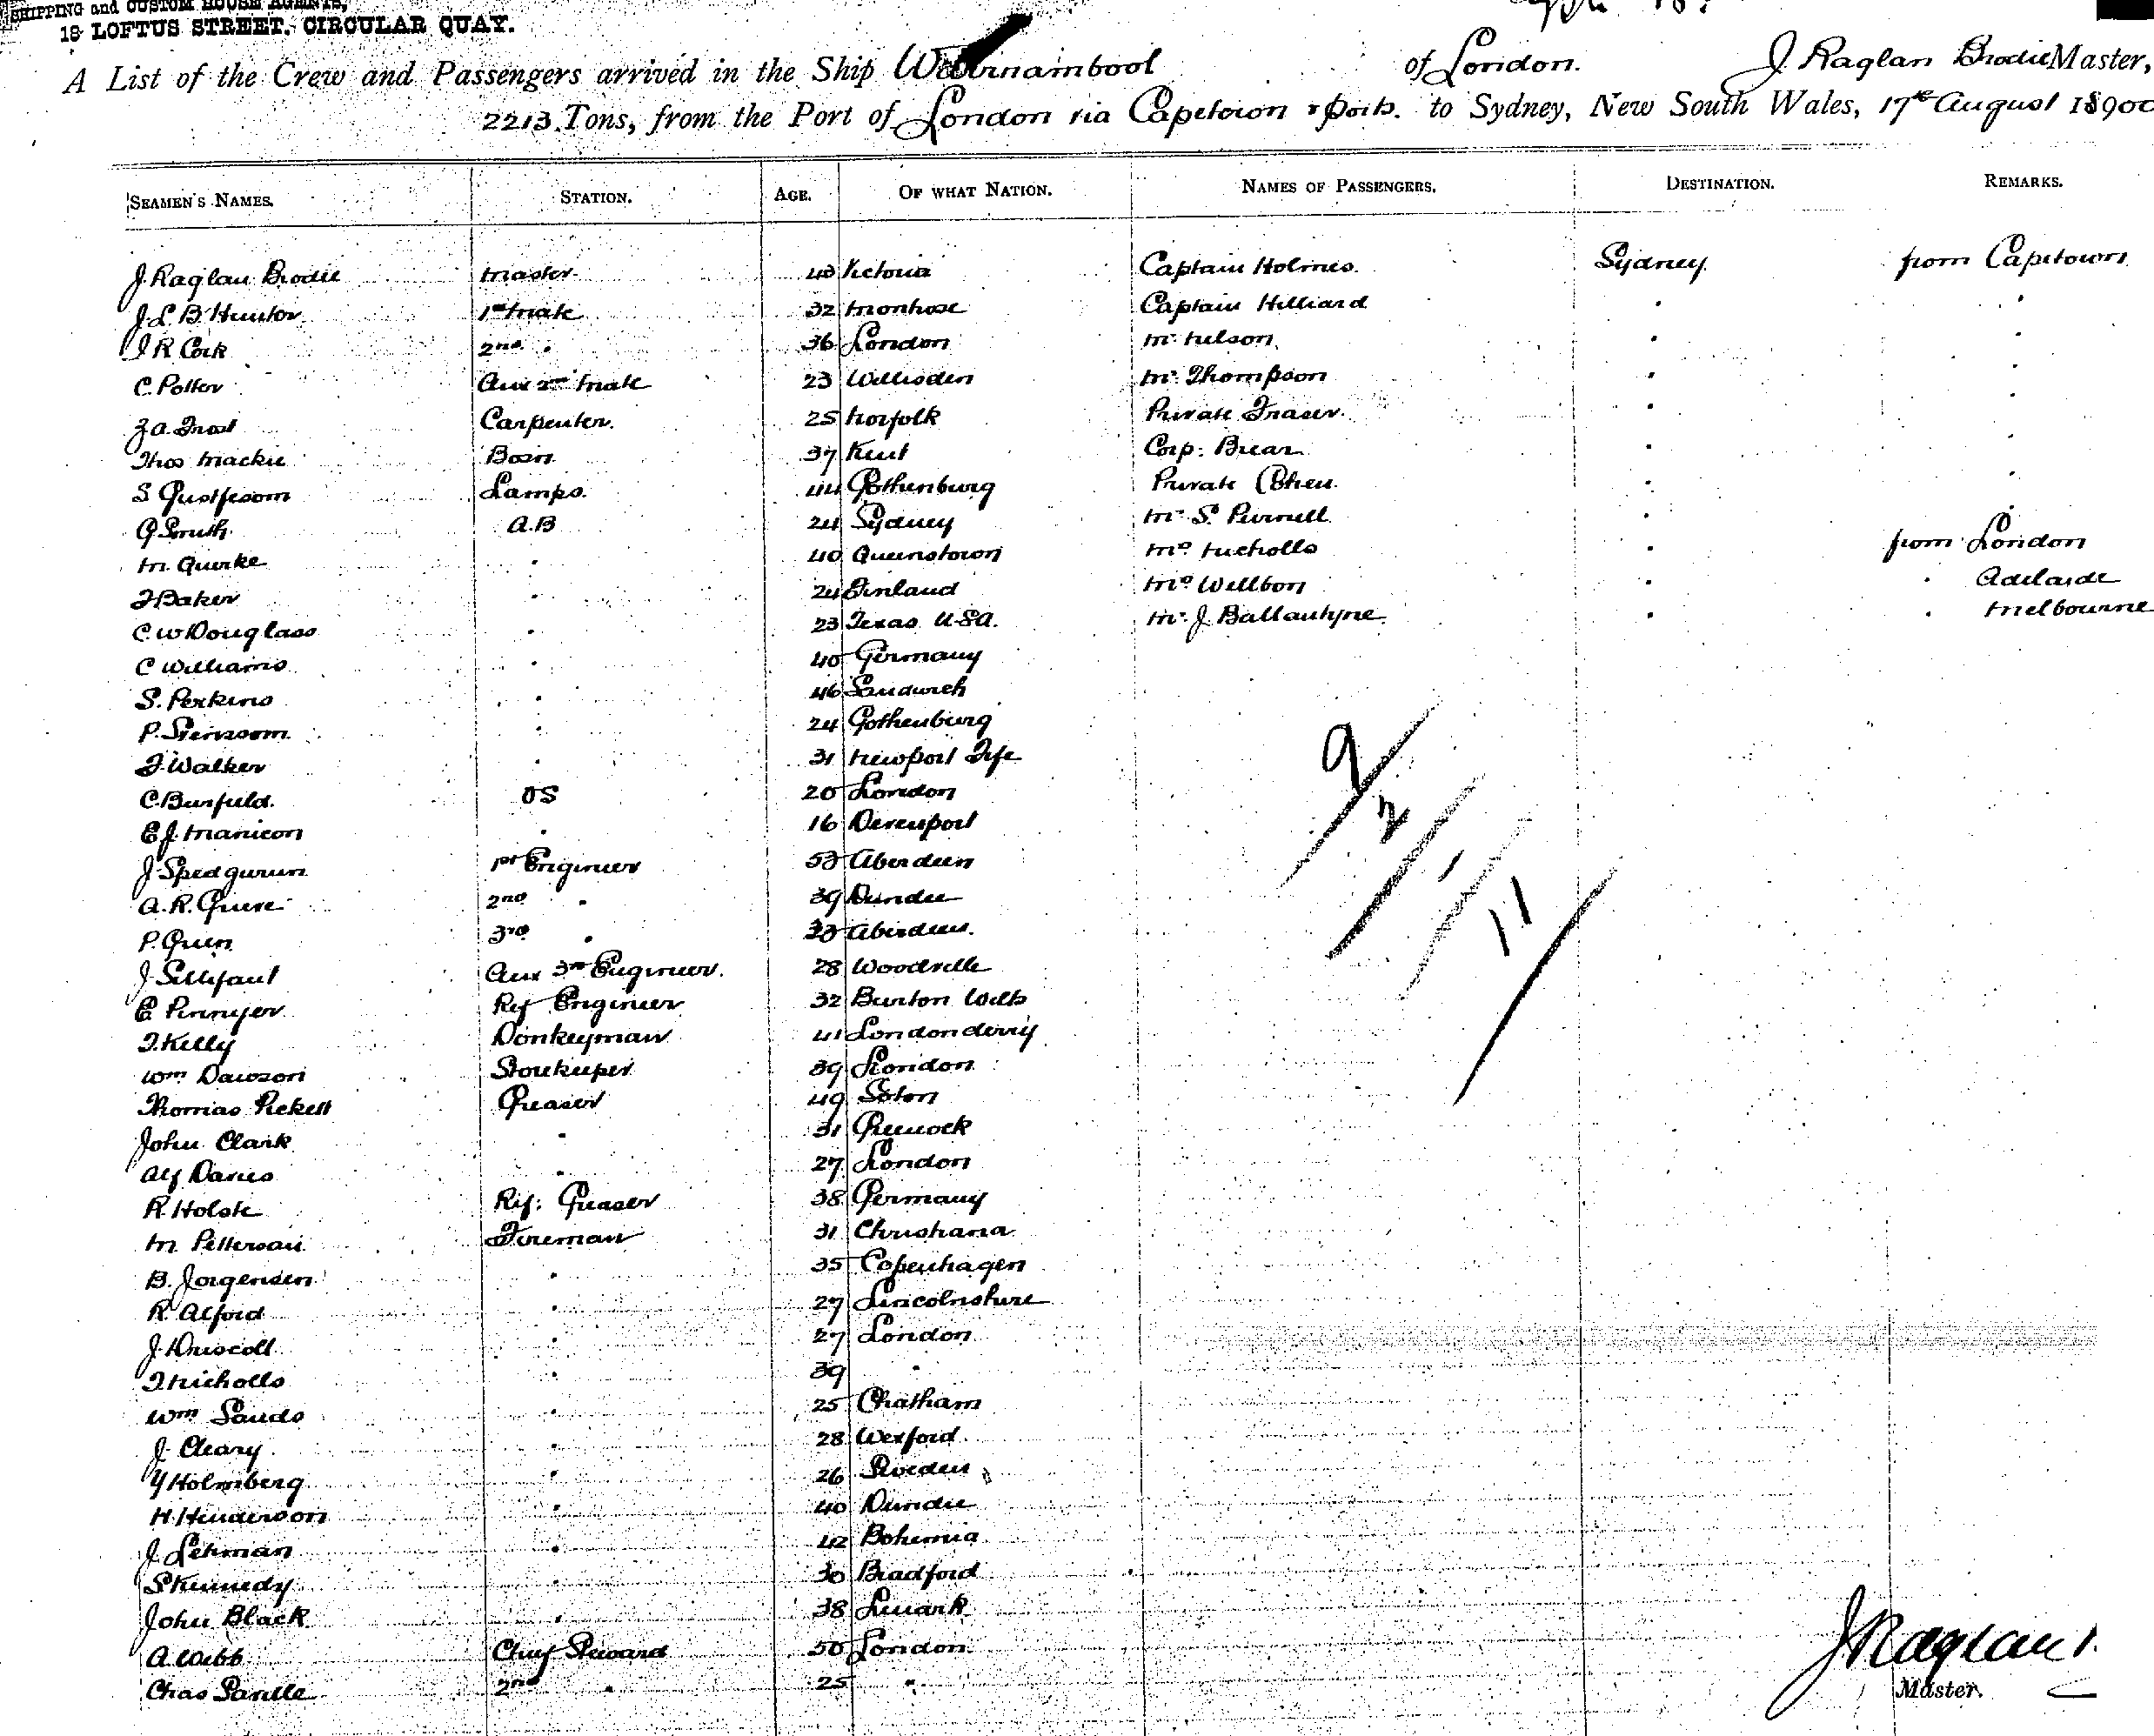 SHIPPING and CUSTOM HOUSE AGENTS,
18 LOFTUS STREET. CIRCULAR QUAY.
A List of the Crew and Passengers arrived in the Ship Warrnambool of London. J. Raglan Brodie Master,
2213 Tons, from the Port of London via Capetown & Ports. to Sydney, New South Wales, 17th August 1890
SEAMEN'S NAMES. STATION. AGE. OF WHAT NATION. NAMES OF PASSENGERS. DESTINATION. REMARKS.
J. Raglan Brodie Master 40 Victoria Captain Holmes. Sydney. from Capetown
J. L. B. Hunter 1st Mate 32 Montrose Captain Hilliard " "
J R Cork 2nd " 36 London Mr Nelson. " "
C. Potter Aux 2nd Mate 23 Willisden Mr Thompson " "
Z. A. Frost Carpenter. 25 Norfolk Private Fraser. " "
Thos Mackie Bosn 37 Kent Corp: Brear " "
S Gustfesom Lamps. 44 Gothenburg Private Cohen. " "
G Smith A.B 24 Sydney Mr S. Purnell " "
M. Quirke " 40 Queenstown Mrs Nicholls " from London
J Baker " 24 Finland Mrs Wellbon " " Adelaide
C. W Douglass " 23 Texas U.S.A. Mr. J. Ballantyne. " " Melbourne
C Williams " 40 Germany
S. Perkins " 46 Sandwich
P. " 24 Gothenburg
J. Walker " 31 Newport Fife
C. Burfield. OS 20 London
E J. Manicon " 16 Devenport
J. 1st Engineer 53 Aberdeen
A. R. 2nd " 39 Dundee
P. 3rd " 33 Aberdeen.
J. Sillifant Aux 3rd Engineer. 28 Woodville
E Pinnyer Ref Engineer 32 Burton Wilts
J. Kelly Donkeyman 41 Londonderry
Wm Dawson Storekeeper 39 London
Thomas Pickett Greaser 49 Soton
John Clark " 31 Greenock
Alf Davies " 27 London
R. Holste Rif: Greaser 38 Germany
M Pettersen Fireman 31 Christiana
B. Jorgensen " 35 Copenhagen
R Alford " 27 Lincolnshire
J. Driscoll " 27 London
J Nicholls " 39 "
Wm Sands " 25 Chatham
J. Cleary " 28 Wexford
Y Holmberg " 26 Sweden
H. Henderson " 40 Dundee
J. Lehman " 42 Bohemia
S Kennedy " 30 Bradford
John Black " 38 Lanark
A. Webb Chief Steward 50 London
Chas 2nd " 25 "
9/2/1/11/
J Raglan
Master.